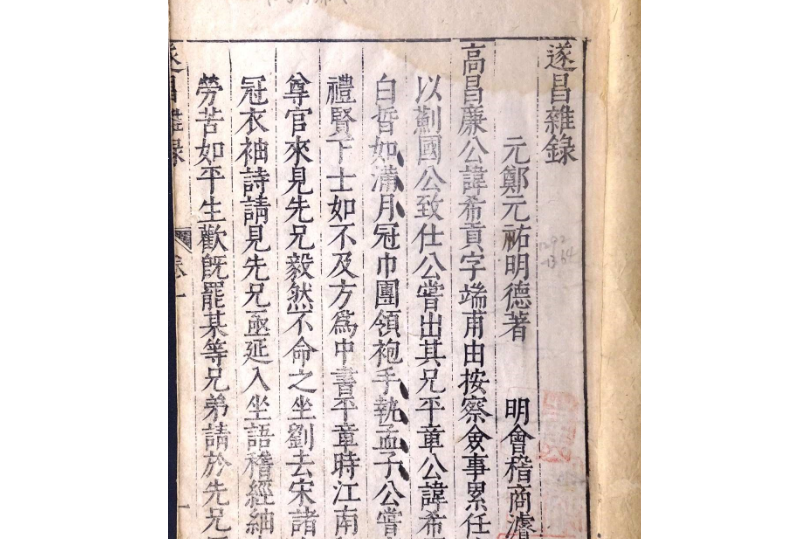 遂昌雜錄
元鄭元祐明德著 明會稽商濬
高昌廉公諱希貢字端甫由按察僉事累任
以薊國公致仕公嘗出其兄平章公諱希
白皙如滿月冠巾團領袍手執孟子公嘗
禮賢下士如不及方爲中書平章時江南
尊官來見先兄毅然不命之坐劉去宋諸
冠衣袖詩請見先兄亟延入坐語稽經紬
勞苦如平生歡旣罷某等兄弟請於先兄
遂昌雜錄 卷一